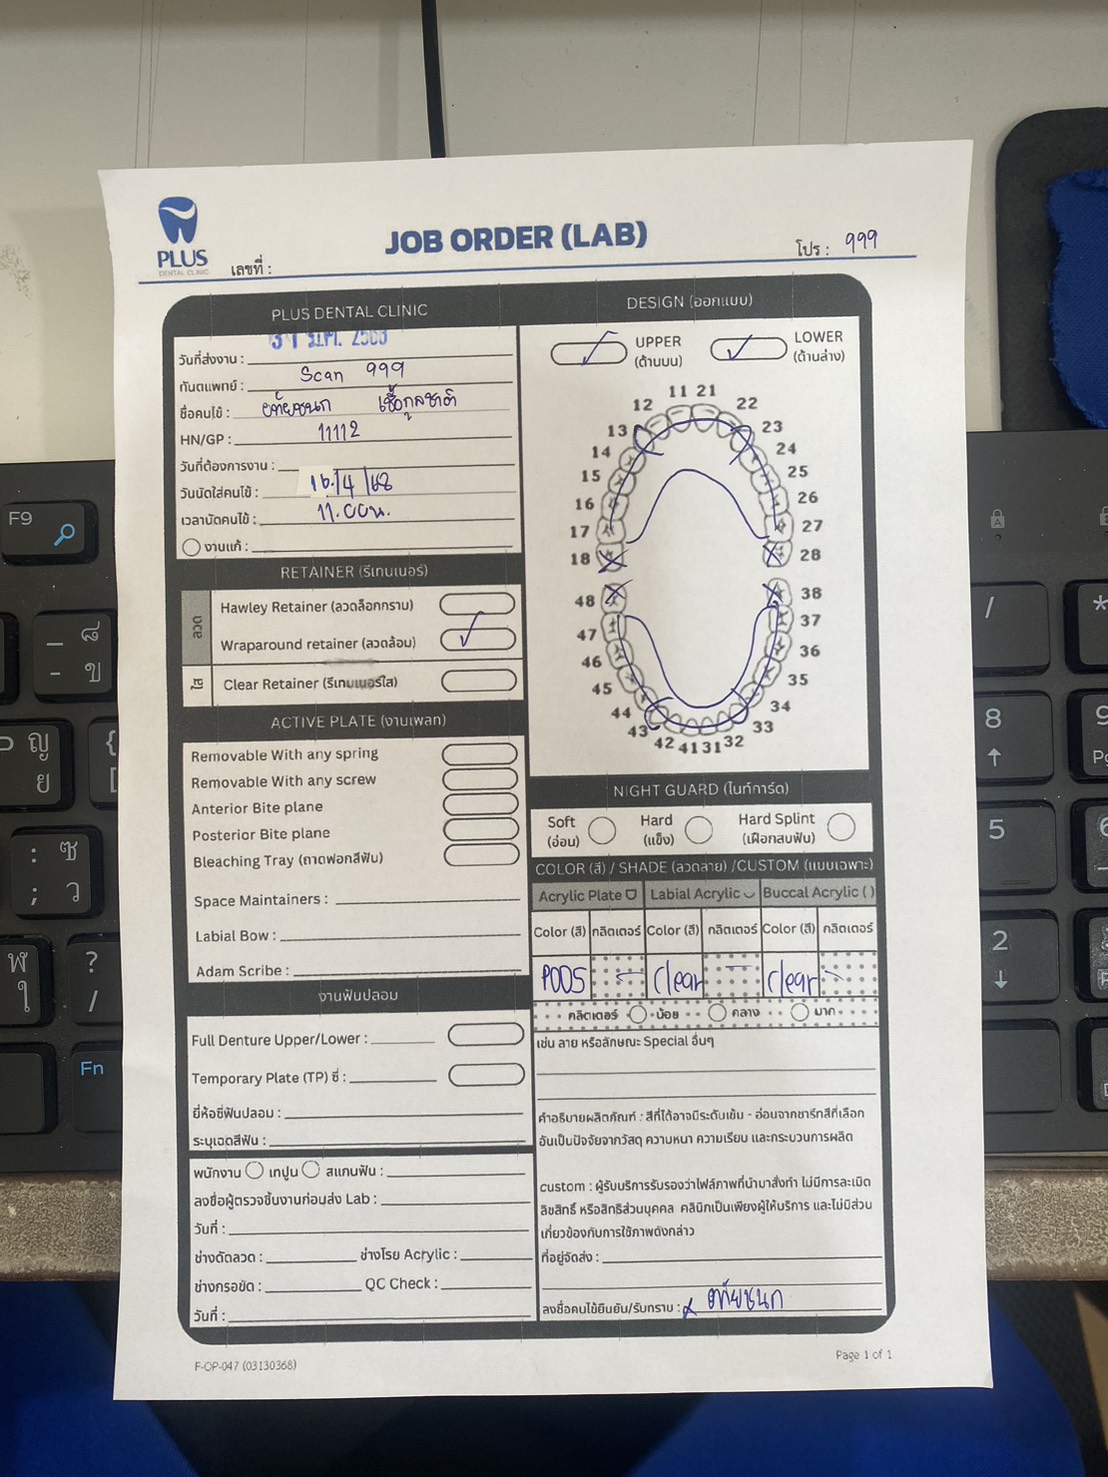 PLUS
DENTAL CLINIC
JOB ORDER (LAB)
เลขที่ :
โปร : 999
PLUS DENTAL CLINIC
31 มี.ค. 2568
วันที่ส่งงาน :
ทันตแพทย์ : Scan 999
ชื่อคนไข้ : หทัยชนก เชื้อกูลชาติ
HN/GP : 11112
วันที่ต้องการงาน :
วันนัดใส่คนไข้ : 16/4/68
เวลานัดคนไข้ : 11.00น.
งานแก้ :
RETAINER (รีเทนเนอร์)
ลวด
Hawley Retainer (ลวดล็อกกราม)
Wraparound retainer (ลวดล้อม)
ใส
Clear Retainer (รีเทนเนอร์ใส)
ACTIVE PLATE (งานเพลท)
Removable With any spring
Removable With any screw
Anterior Bite plane
Posterior Bite plane
Bleaching Tray (ถาดฟอกสีฟัน)
Space Maintainers :
Labial Bow :
Adam Scribe :
งานฟันปลอม
Full Denture Upper/Lower :
Temporary Plate (TP) ซี่ :
ยี่ห้อซี่ฟันปลอม :
ระบุเฉดสีฟัน :
พนักงาน เทปูน สแกนฟัน :
ลงชื่อผู้ตรวจชิ้นงานก่อนส่ง Lab :
วันที่ :
ช่างดัดลวด : ช่างโรย Acrylic :
ช่างกรอขัด : QC Check :
วันที่ :
DESIGN (ออกแบบ)
UPPER
(ด้านบน)
LOWER
(ด้านล่าง)
11 21
12 22
13 23
14 24
15 25
16 26
17 27
18 28
48 38
47 37
46 36
45 35
44 34
43 33
42 41 31 32
NIGHT GUARD (ไนท์การ์ด)
Soft
(อ่อน)
Hard
(แข็ง)
Hard Splint
(เฝือกสบฟัน)
COLOR (สี) / SHADE (ลวดลาย) /CUSTOM (แบบเฉพาะ)
Acrylic Plate Labial Acrylic Buccal Acrylic ( )
Color (สี) กลิตเตอร์ Color (สี) กลิตเตอร์ Color (สี) กลิตเตอร์
P005 - Clear - Clear -
กลิตเตอร์ น้อย กลาง มาก
เช่น ลาย หรือลักษณะ Special อื่นๆ
คำอธิบายผลิตภัณฑ์ : สีที่ได้อาจมีระดับเข้ม - อ่อนจากชาร์ทสีที่เลือก
อันเป็นปัจจัยจากวัสดุ ความหนา ความเรียบ และกระบวนการผลิต
custom : ผู้รับบริการรับรองว่าไฟล์ภาพที่นำมาสั่งทำ ไม่มีการละเมิด
ลิขสิทธิ์ หรือสิทธิส่วนบุคคล คลินิกเป็นเพียงผู้ให้บริการ และไม่มีส่วน
เกี่ยวข้องกับการใช้ภาพดังกล่าว
ที่อยู่จัดส่ง :
ลงชื่อคนไข้ยืนยัน/รับทราบ : x หทัยชนก
F-OP-047 (03130368)
Page 1 of 1
F9
Fn
8
5
2